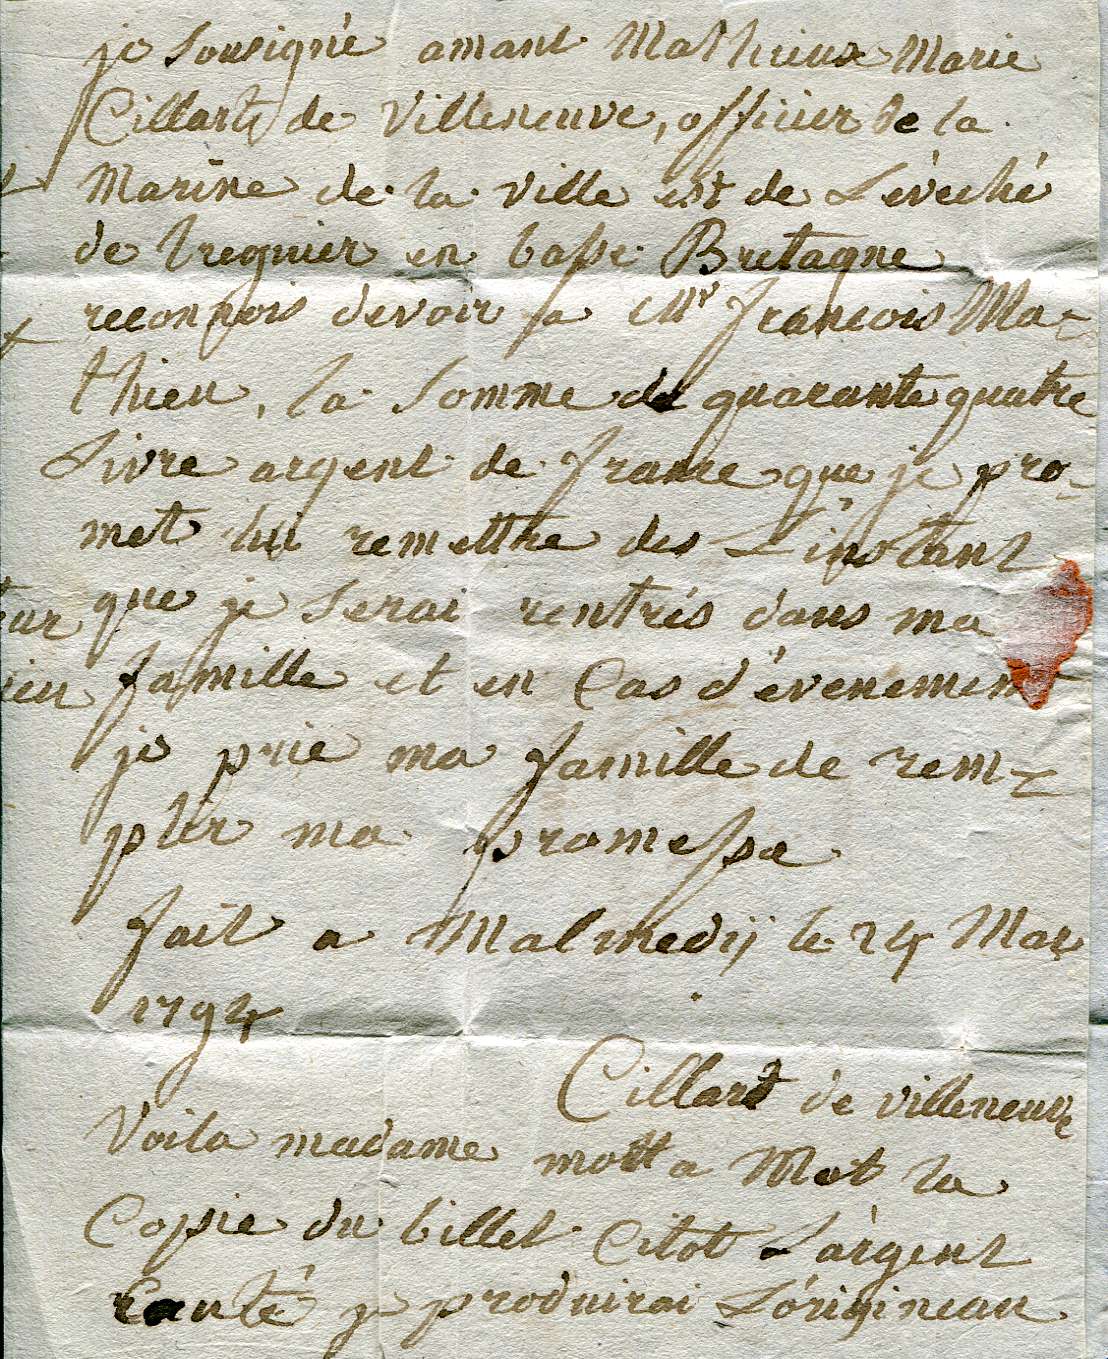 je Sousigné amant Mathieux Marie
Cillart de Villeneuve, officier de la
Marine de la ville est de L'évéché
de treguier en basse Bretagne
reconnois devoir a Mr francois Ma-
thieu, la Somme de quarante quatre
Livre argent de france que je pro-
met lui remettre des L'instant
que je Serai rentrés dans ma
famille et en Cas d'évenement
je prie ma famille de rem-
plir ma promesse
fait a Malmedij le 24 Mar
1794
Cillart de villeneuve
Voila madame mott a Mot la
Copie du billet Citot L'argent
conté je produirai L'origineau